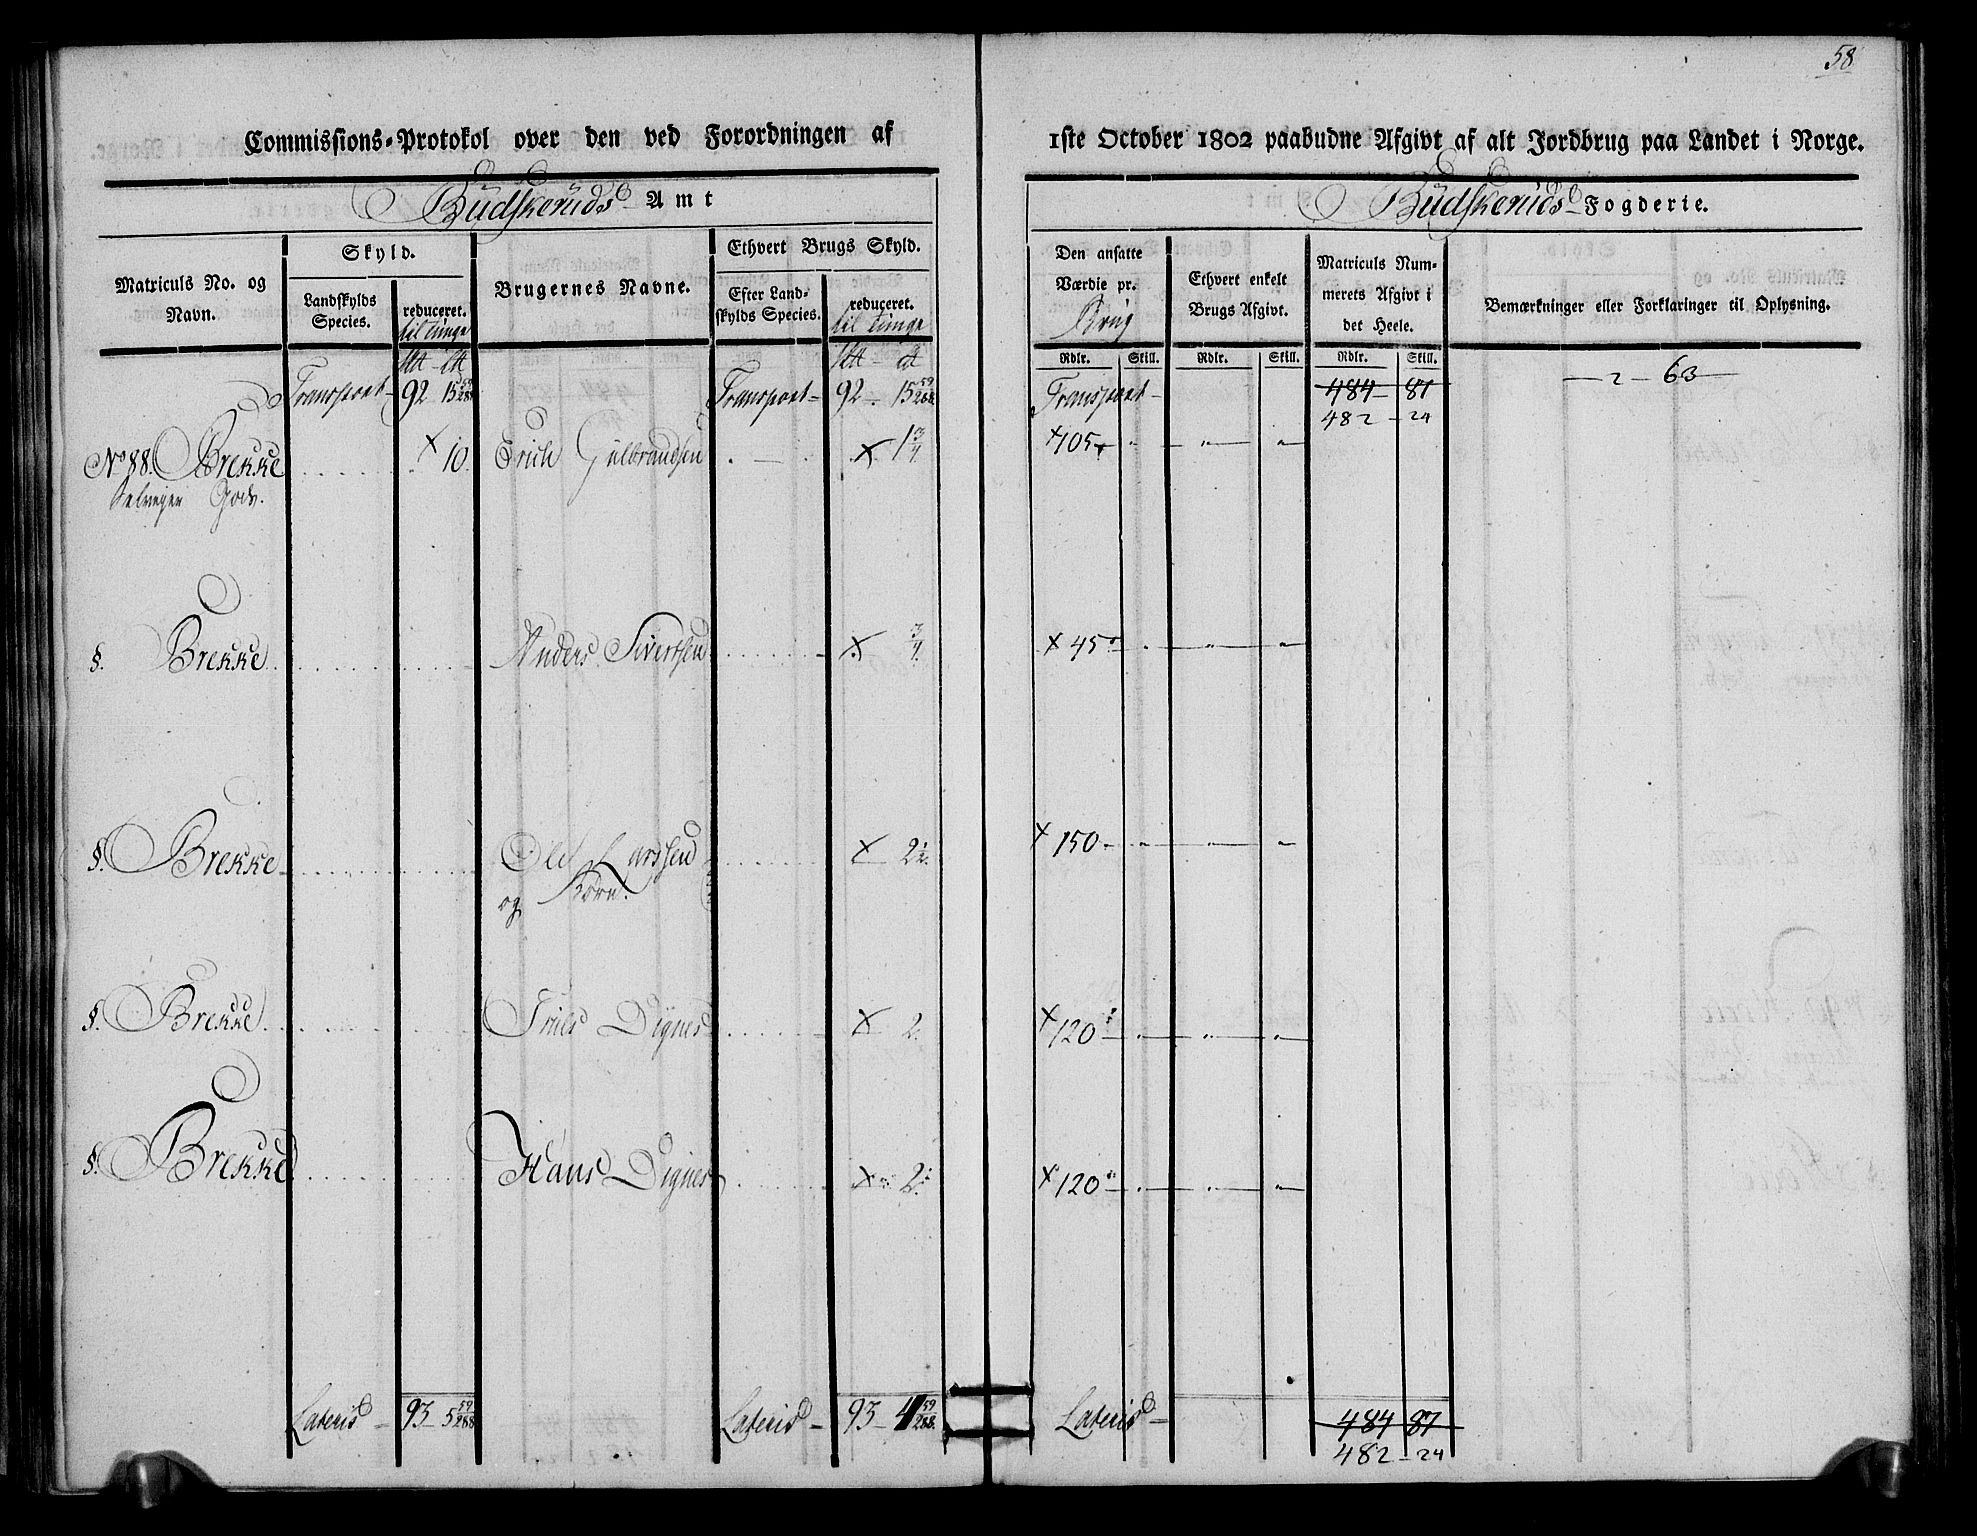 58
Commissions-Protokol over den ved Forordningen af 1ste October 1802 paabudne Afgivt af alt Jordbrug paa Landet i Norge.
Budskeruds Amt
Budskeruds Fogderie.
Matriculs No. og Navn.
Skyld.
Landskylds Species.
reduceret.
til tunge
Brugernes Navne.
Ethvert Brugs Skyld.
Efter Landskylds Species.
reduceret.
til tunge
Den ansatte Værdie pr.
Brug
Ethvert enkelt Brugs Afgivt.
Matriculs Nummerets Afgivt i det Heele.
Bemærkninger eller Forklaringer til Oplysning.
Rdlr. Skill. Rdlr. Skill. Rdlr. Skill.
Transport - 92 15 59/288 Transport - 92 - 15 59/288 Transport - 484 - 87 - 2 - 63 -
482 - 24
No 88. Brekke × 10. Erich Gulbrandsen × 1 3/4 × 105
Selveger Gods.
§. Brekke Anders Sivertsen × 3/4 × 45
§. Brekke Ole Larssen × 2 1/2 × 150
og Børn.
§. Brekke Friles Dignes × 2 × 120
§. Brekke Hans Dignes × 2 × 120
Lateris - 93 - 5 59/288 Lateris - 93 - 4 59/288 Lateris - 484 87
482 - 24